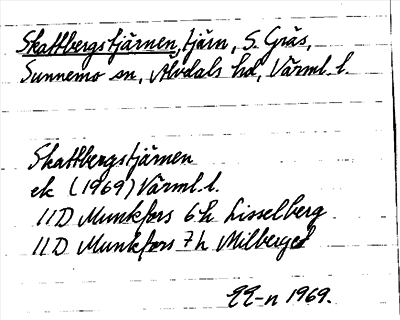 Skattbergstjärnen, tjärn, S. Gräs,
Sunnemo sn, Älvdals hd, Värml. l.
Skattbergstjärnen
ek (1969) Värml. l.
11D Munkfors 6h Lisselberg
11D Munkfors 7h Milberget
1969.